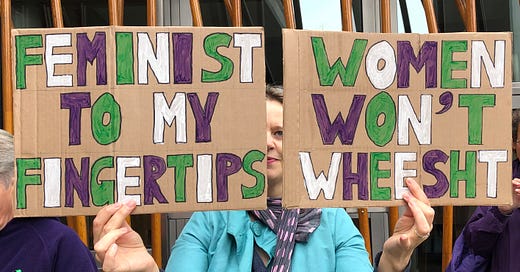 FEMINIST
TO MY
FINGERTIPS
WOMEN
WON'T
WHEESHT